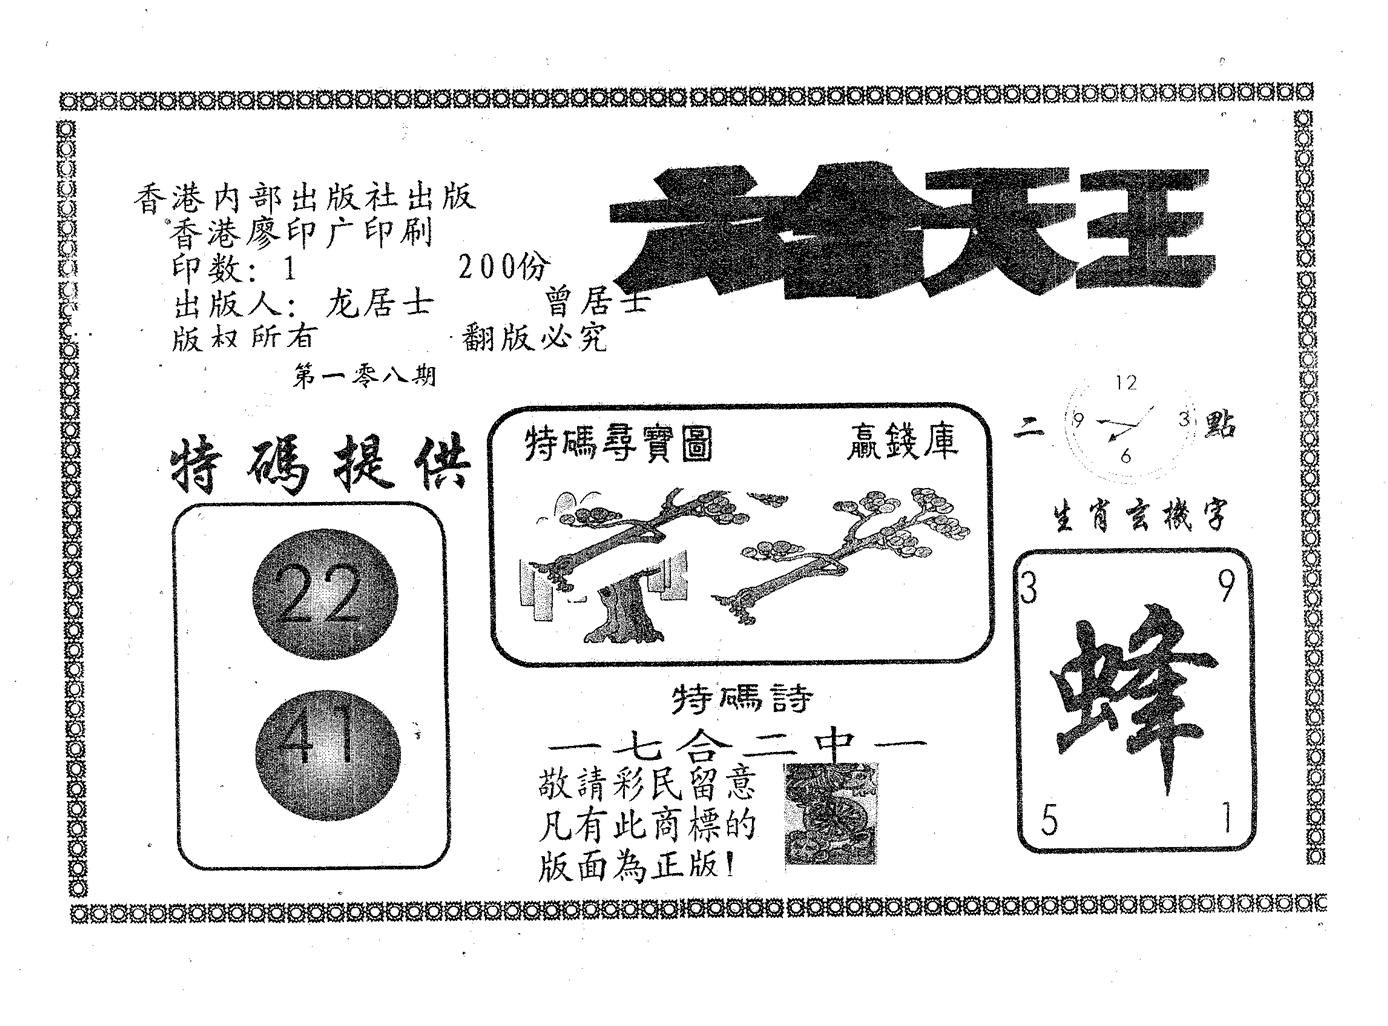 六合天王
香港内部出版社出版
香港廖印广印刷
印数：1 200份
出版人：龙居士 曾居士
版权所有 翻版必究
第一零八期
特碼提供
22
41
特碼尋寶圖 贏錢庫
二 點
12
9 3
6
生肖玄機字
3 9
蜂
5 1
特碼詩
一七合二中一
敬請彩民留意
凡有此商標的
版面為正版！